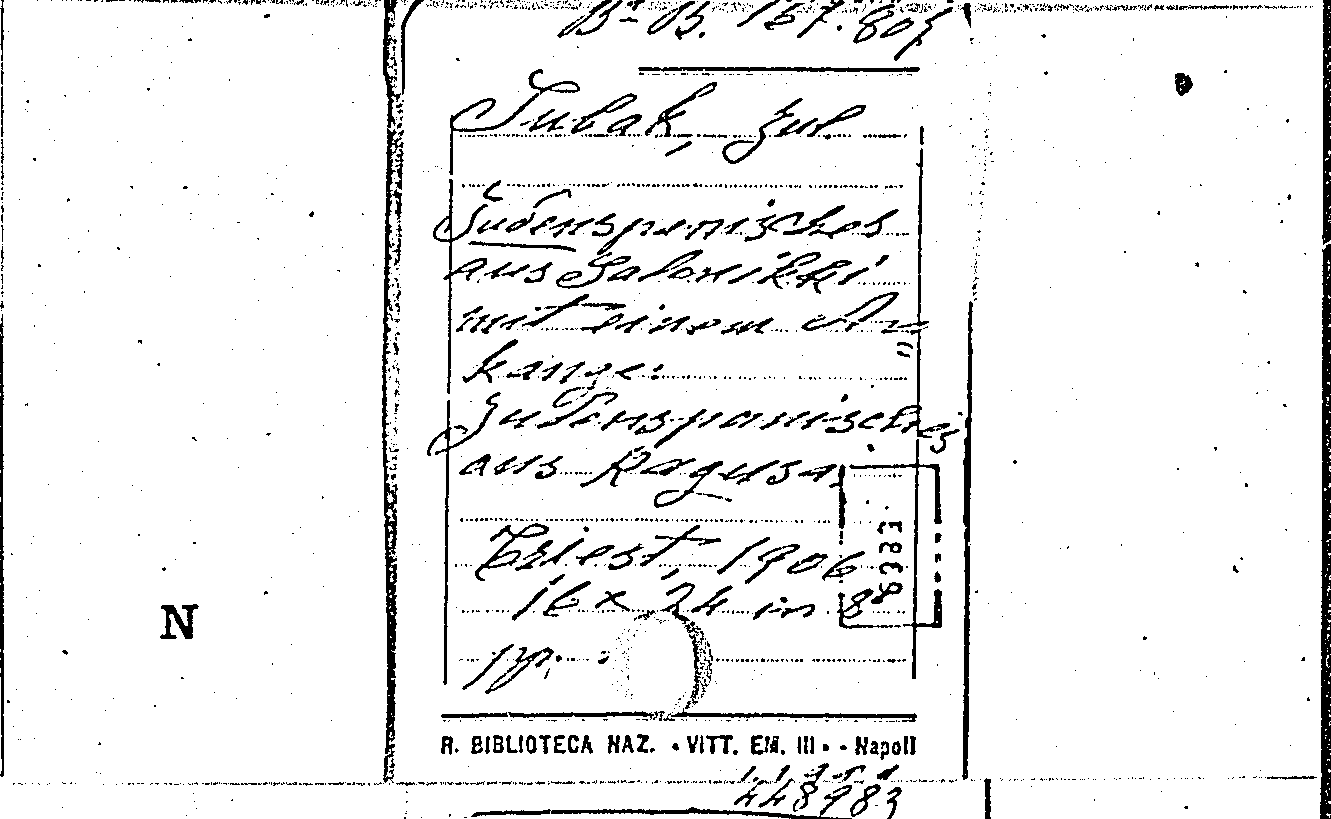 Bª B. 157.807
Subak, Jul.
Judenspanisches
aus Salonikki
mit einem An
hange:
Judenspanisches
aus Ragusa.
Triest, 1906
16 x 24 in 8º
pp.
8383
N
R. BIBLIOTECA NAZ. • VITT. EM. III • - Napoli
448983